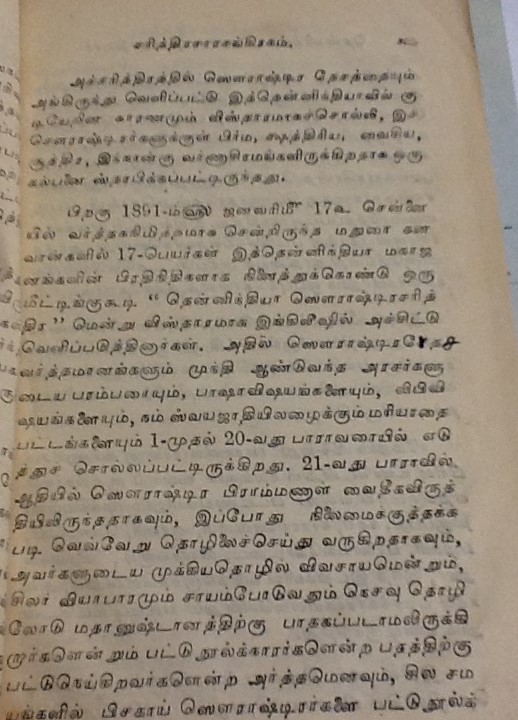 சரித்திரசாரசங்கிரகம்.
அச்சரித்திரத்தில் ஸௌராஷ்டிர தேசத்தையும்
அங்கிருந்து வெளிப்பட்டு இத்தென்னிந்தியாவில் கு
டியேறின காரணமும் விஸ்தாரமாகச்சொல்லி, இச்
சௌராஷ்டிரர்களுக்குள் பிர்ம, க்ஷத்திரிய, வைசிய,
சூத்திர, இந்நான்கு வர்ணாசிரமங்களிருக்கிறதாக ஒரு
கல்பனை ஸ்தாபிக்கப்பட்டிருந்தது.
பிறகு 1891-ம்௵ ஜனவரி௴ 17௳ சென்னை
யில் வர்த்தகநிமித்தமாக சென்றிருந்த மதுரை கன
வான்களில் 17-பெயர்கள் இத்தென்னிந்தியா மகாஜ
னங்களின் பிரதிநிதிகளாக நினைத்துக்கொண்டு ஒரு
மீட்டிங்குகூடி “ தென்னிந்தியா ஸௌராஷ்டிரசரித்
திர ” மென்று விஸ்தாரமாக இங்கிலீஷில் அச்சிட்டு
வெளிப்படுத்தினார்கள். அதில் ஸௌராஷ்டிரதேச
வர்த்தமானங்களும் முந்தி ஆண்டுவந்த அரசர்களு
டைய பரம்பரையும், பாஷாவிஷயங்களையும், லிபிவி
ஷயங்களையும், நம் ஸ்வயஜாதியிலழைக்கும் மரியாதை
பட்டங்களையும் 1-முதல் 20-வது பாராவரையில் எடு
த்துச் சொல்லப்பட்டிருக்கிறது. 21-வது பாராவில்
ஆதியில் ஸௌராஷ்டிர பிராம்மணாள் வைதீகவிருத்
தியிலிருந்ததாகவும், இப்போது நிலைமைக்குத்தக்க
படி வெவ்வேறு தொழிலைச்செய்து வருகிறதாகவும்,
அவர்களுடைய முக்கியதொழில் விவசாயமென்றும்,
சிலர் வியாபாரமும் சாயம்போடுவதும் நெசவு தொழி
லோடு மதானுஷ்டானத்திற்கு பாதகப்படாமலிருக்கி
றார்களென்றும் பட்டுநூல்க்காரர்களென்ற பதத்திற்கு
பட்டுநெய்கிறவர்களென்ற அர்த்தமெனவும், சில சம
யங்களில் பிசகாய் ஸௌராஷ்டிரர்களை பட்டுநூல்க்